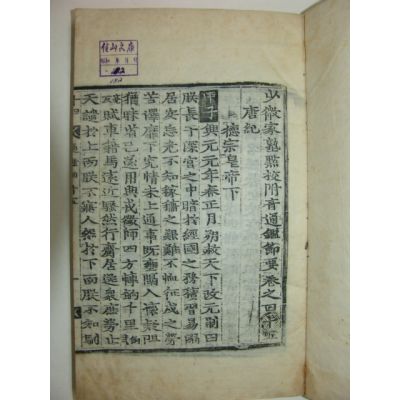 少微家塾點校附音通鑑節要卷之四十
唐紀
德宗皇帝下
甲子興元元年春正月朔赦天下改元制曰
朕長于深宮之中暗於經國之務積習易溺
居安忘危不知稼穡之艱難不恤征戍之勞
苦澤靡下究情未上通事旣壅隔人懷疑阻
猶昧省己遂用興戎徵師四方轉餉千里
賦車籍馬遠近騷然行齎居送衆庶勞止
天譴於上而朕不寤人怨於下而朕不知馴